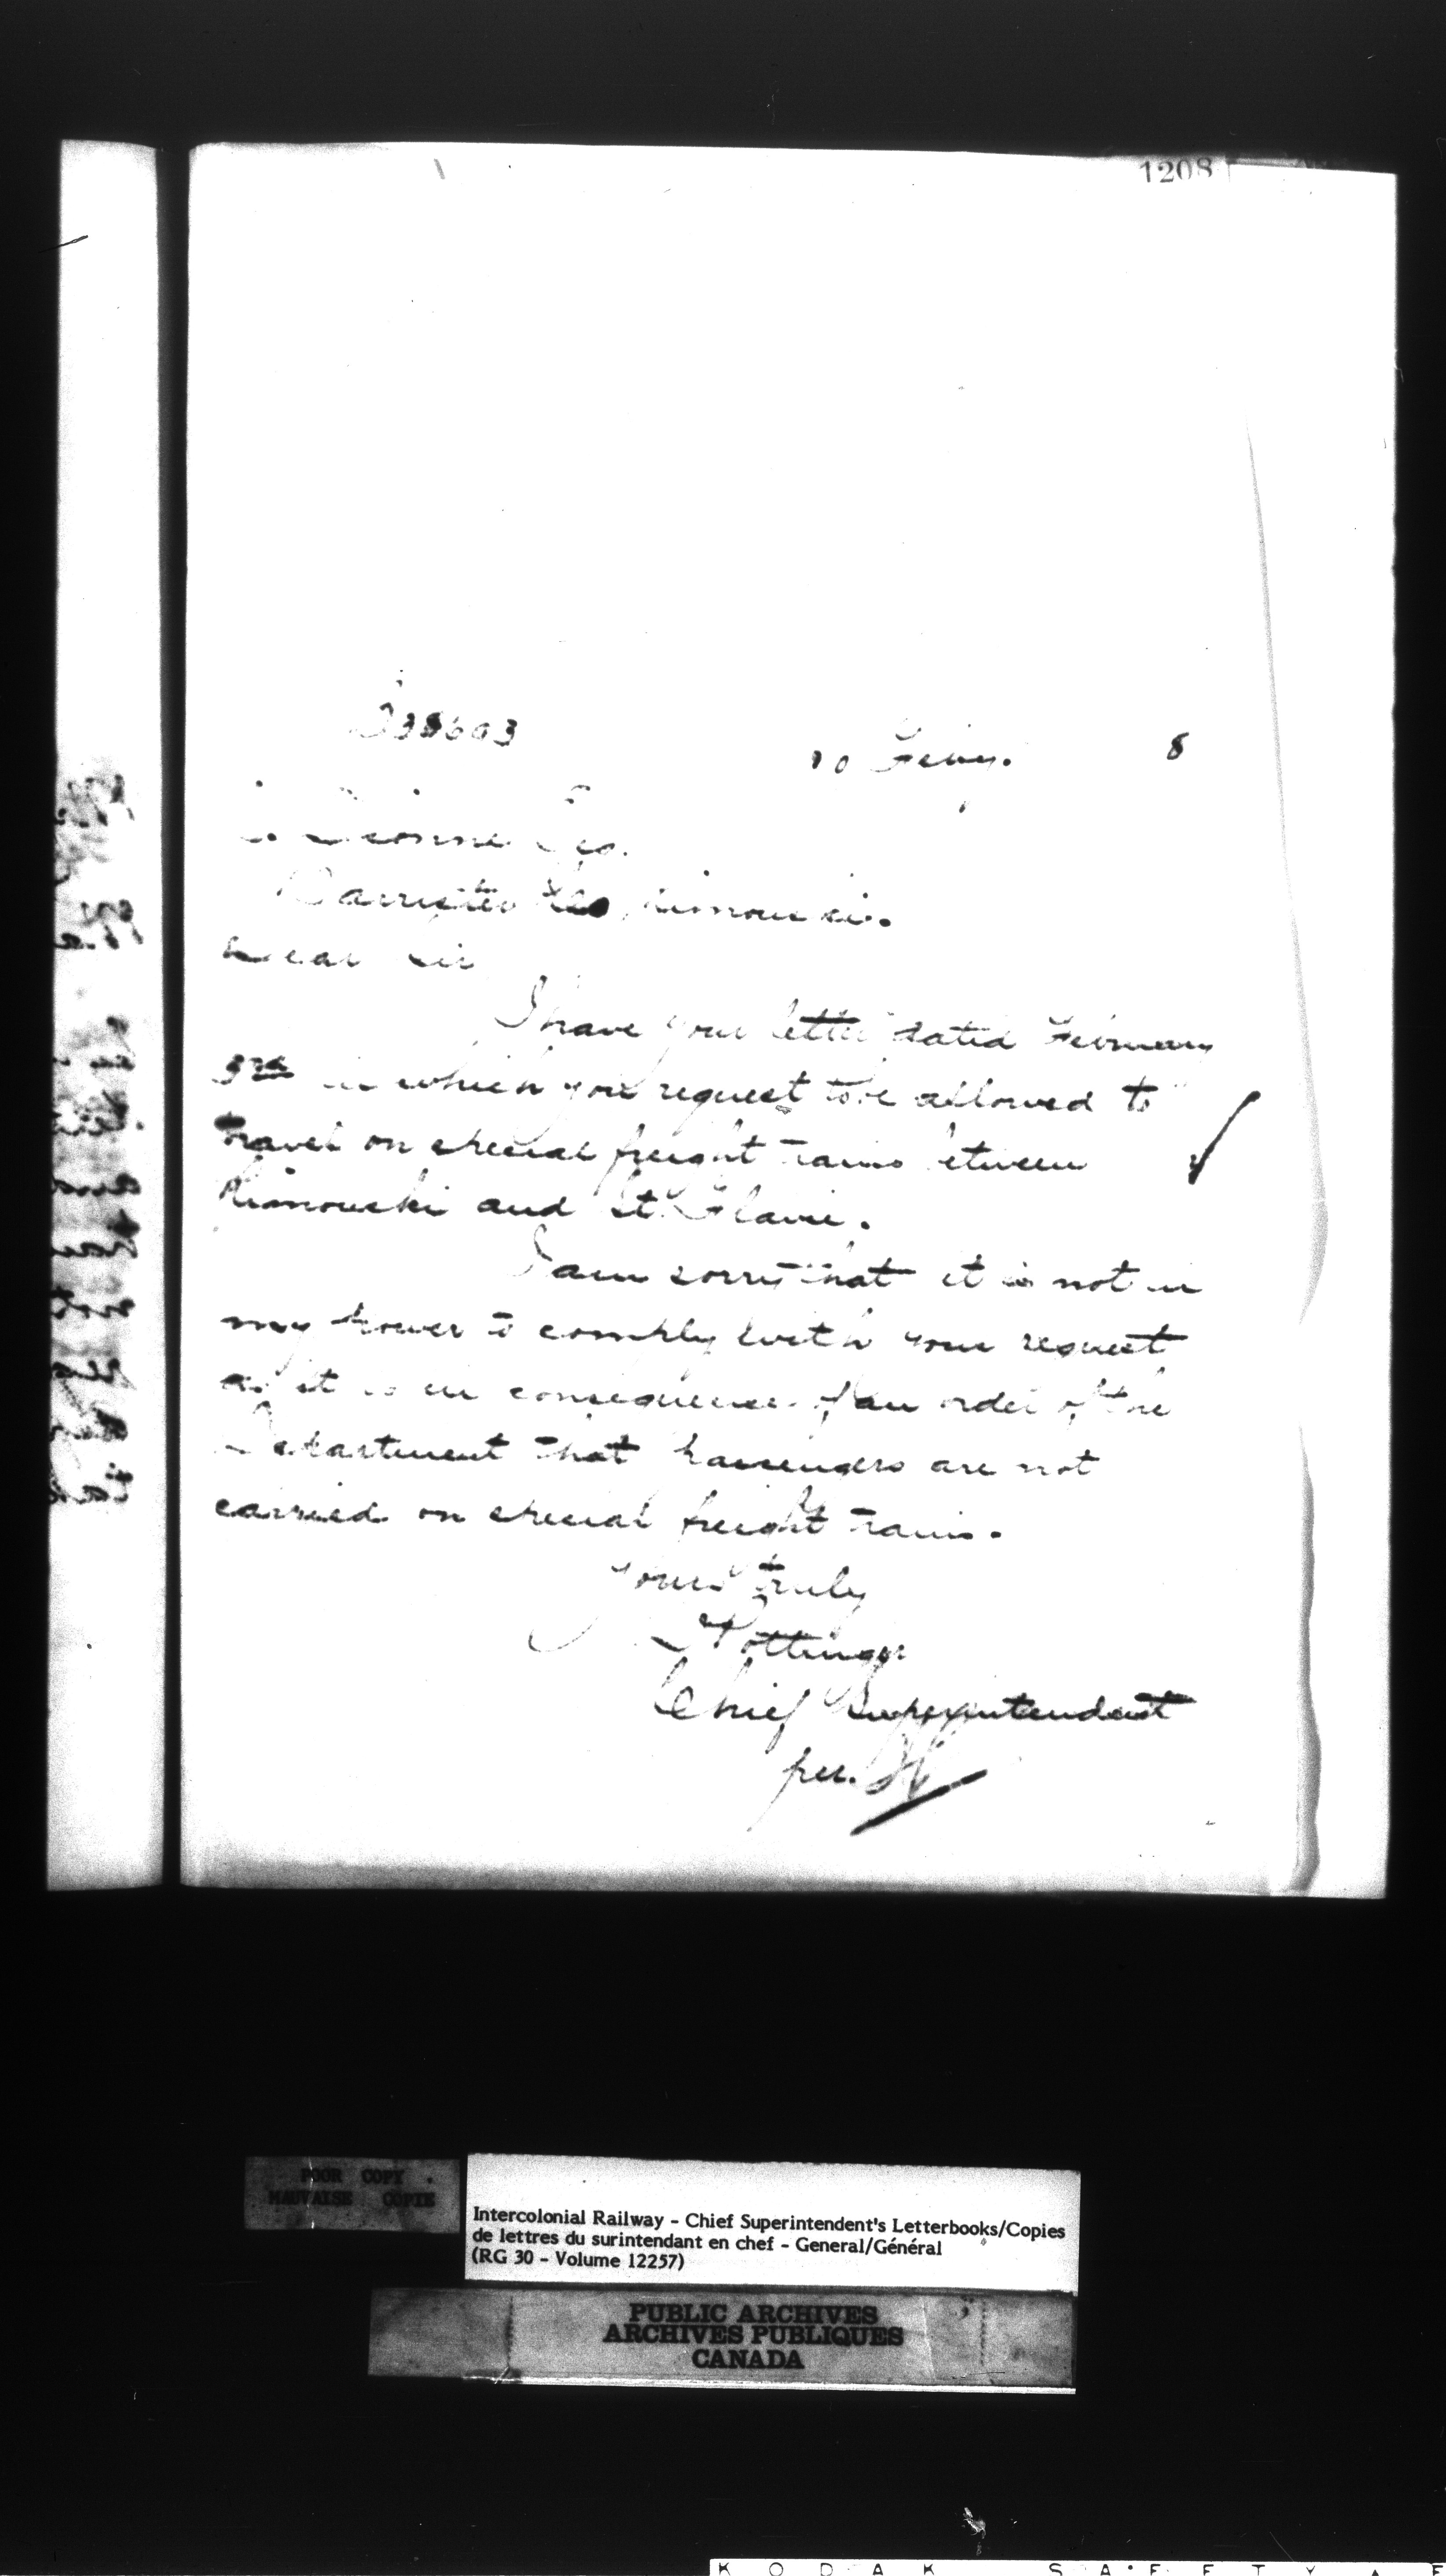 1208
10 Feby. 8
Dionne Esq.
Barrister Rimouski.
Dear Sir
I have your letter dated February
3rd in which you request to be allowed to
travel on special freight trains between
Rimouski and St. Flavie.
I am sorry that it is not in
my power to comply with your request
as it is in consequence of an order of the
Department that passengers are not
carried on special freight trains.
Yours truly
Pottinger
Chief Superintendent
per.
POOR COPY
MAUVAISE COPIE
Intercolonial Railway - Chief Superintendent's Letterbooks/Copies
de lettres du surintendant en chef - General/Général
(RG 30 - Volume 12257)
PUBLIC ARCHIVES
ARCHIVES PUBLIQUES
CANADA
KODAK SAFETY